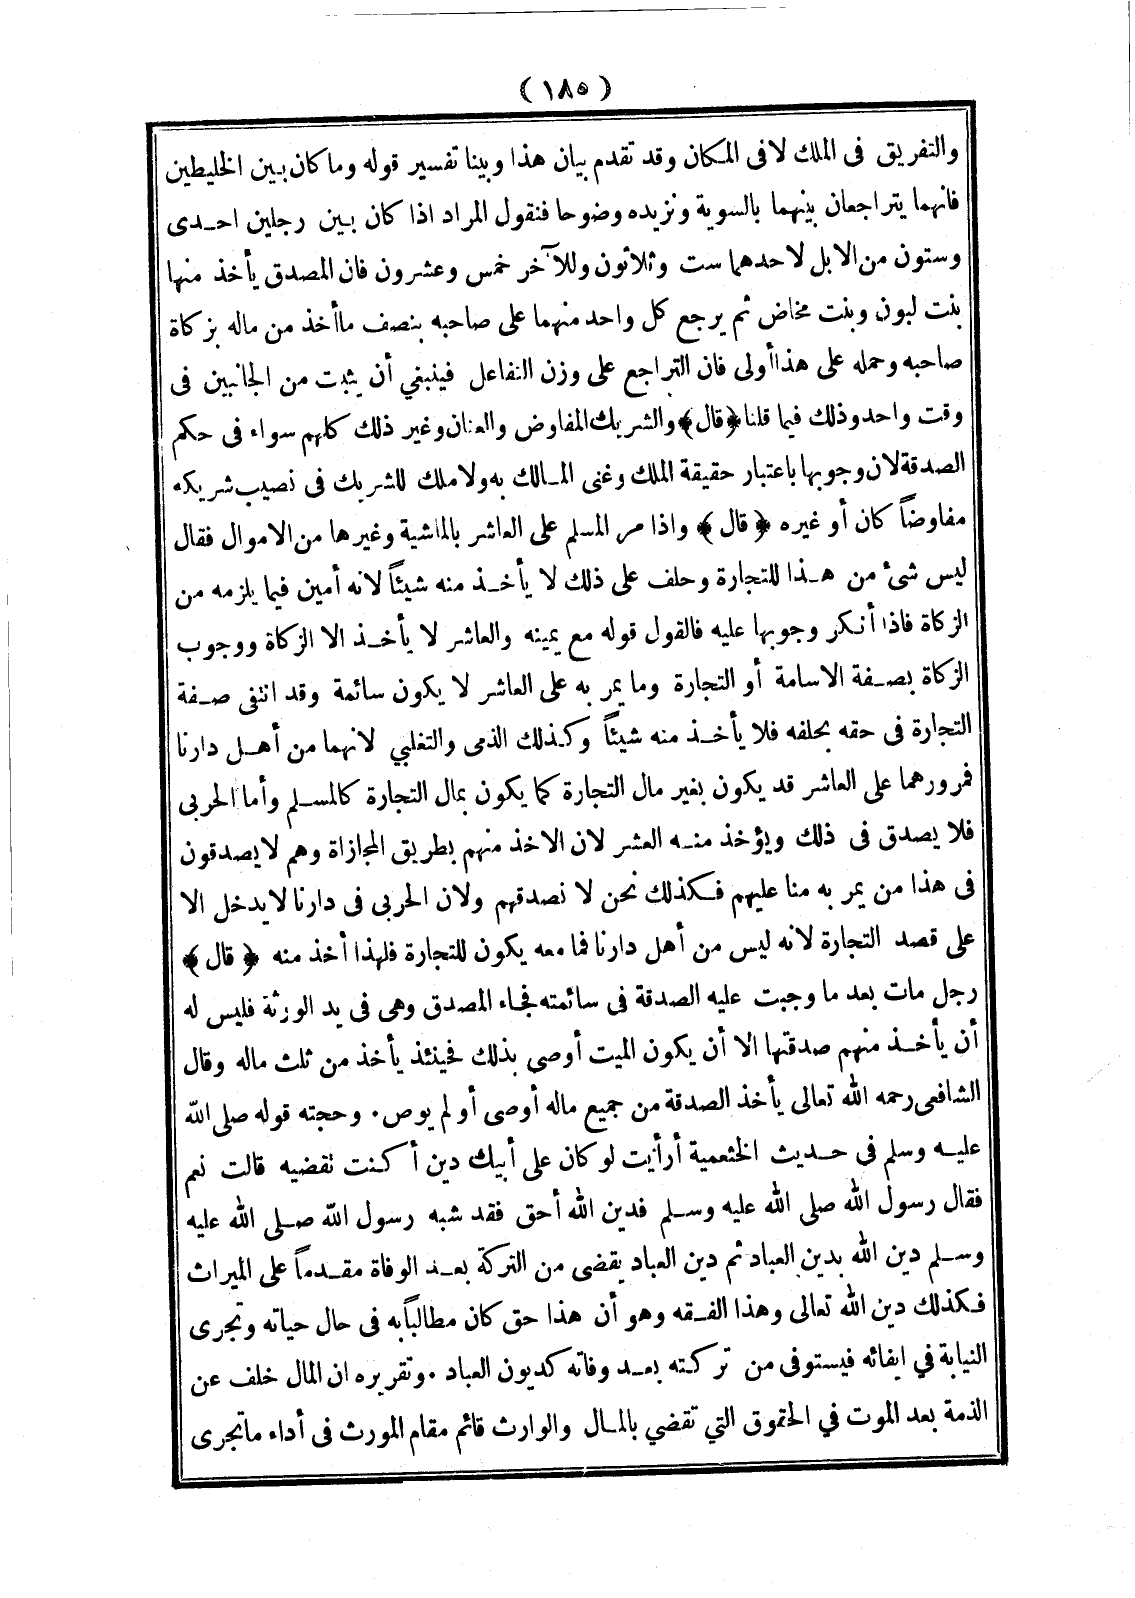 ( ١٨٥ )
والتفريق فى الملك لافى المكان وقد تقدم بيان هذا وبينا تفسير قوله وما كان بين الخليطين
فانهما يتراجعان بينهما بالسوية ونزيده وضوحا فنقول المراد اذا كان بين رجلين احدى
وستون من الابل لاحدهما ست وثلاثون وللآخر خمس وعشرون فان المصدق يأخذ منها
بنت لبون وبنت مخاض ثم يرجع كل واحد منهما على صاحبه بنصف ماأخذ من ماله بزكاة
صاحبه وحمله على هذا أولى فان التراجع على وزن التفاعل فينبغي أن يثبت من الجانبين فى
وقت واحد وذلك فيما قلنا ﴿قال﴾ والشريك المفاوض والعنان وغير ذلك كلهم سواء فى حكم
الصدقة لان وجوبها باعتبار حقيقة الملك وغنى المالك به ولا ملك للشريك فى نصيب شريكه
مفاوضاً كان أو غيره ﴿ قال ﴾ واذا مر المسلم على العاشر بالماشية وغيرها من الاموال فقال
ليس شئ من هذا للتجارة وحلف على ذلك لا يأخذ منه شيئاً لانه أمين فيما يلزمه من
الزكاة فاذا أنكر وجوبها عليه فالقول قوله مع يمينه والعاشر لا يأخذ الا الزكاة ووجوب
الزكاة بصفة الاسامة أو التجارة وما يمر به على العاشر لا يكون سائمة وقد انتفى صفة
التجارة فى حقه بحلفه فلا يأخذ منه شيئاً وكذلك الذمى والتغلبي لانهما من أهل دارنا
فمرورهما على العاشر قد يكون بغير مال التجارة كما يكون بمال التجارة كالمسلم وأما الحربى
فلا يصدق فى ذلك ويؤخذ منه العشر لان الاخذ منهم بطريق المجازاة وهم لا يصدقون
فى هذا من يمر به منا عليهم فكذلك نحن لا نصدقهم ولان الحربى فى دارنا لا يدخل الا
على قصد التجارة لانه ليس من أهل دارنا فما معه يكون للتجارة فلهذا أخذ منه ﴿ قال ﴾
رجل مات بعد ما وجبت عليه الصدقة فى سائمته فجاء المصدق وهى فى يد الورثة فليس له
أن يأخذ منهم صدقتها الا أن يكون الميت أوصى بذلك فحينئذ يأخذ من ثلث ماله وقال
الشافعى رحمه الله تعالى يأخذ الصدقة من جميع ماله أوصى أو لم يوص . وحجته قوله صلى الله
عليه وسلم فى حديث الخثعمية أرأيت لو كان على أبيك دين أكنت تقضيه قالت نعم
فقال رسول الله صلى الله عليه وسلم فدين الله أحق فقد شبه رسول الله صلى الله عليه
وسلم دين الله بدين العباد ثم دين العباد يقضى من التركة بعد الوفاة مقدماً على الميراث
فكذلك دين الله تعالى وهذا الفقه وهو أن هذا حق كان مطالباً به فى حال حياته وتجرى
النيابة في ايفائه فيستوفى من تركته بعد وفاته كديون العباد . وتقريره ان المال خلف عن
الذمة بعد الموت في الحقوق التي تقضي بالمال والوارث قائم مقام المورث فى أداء ماتجرى